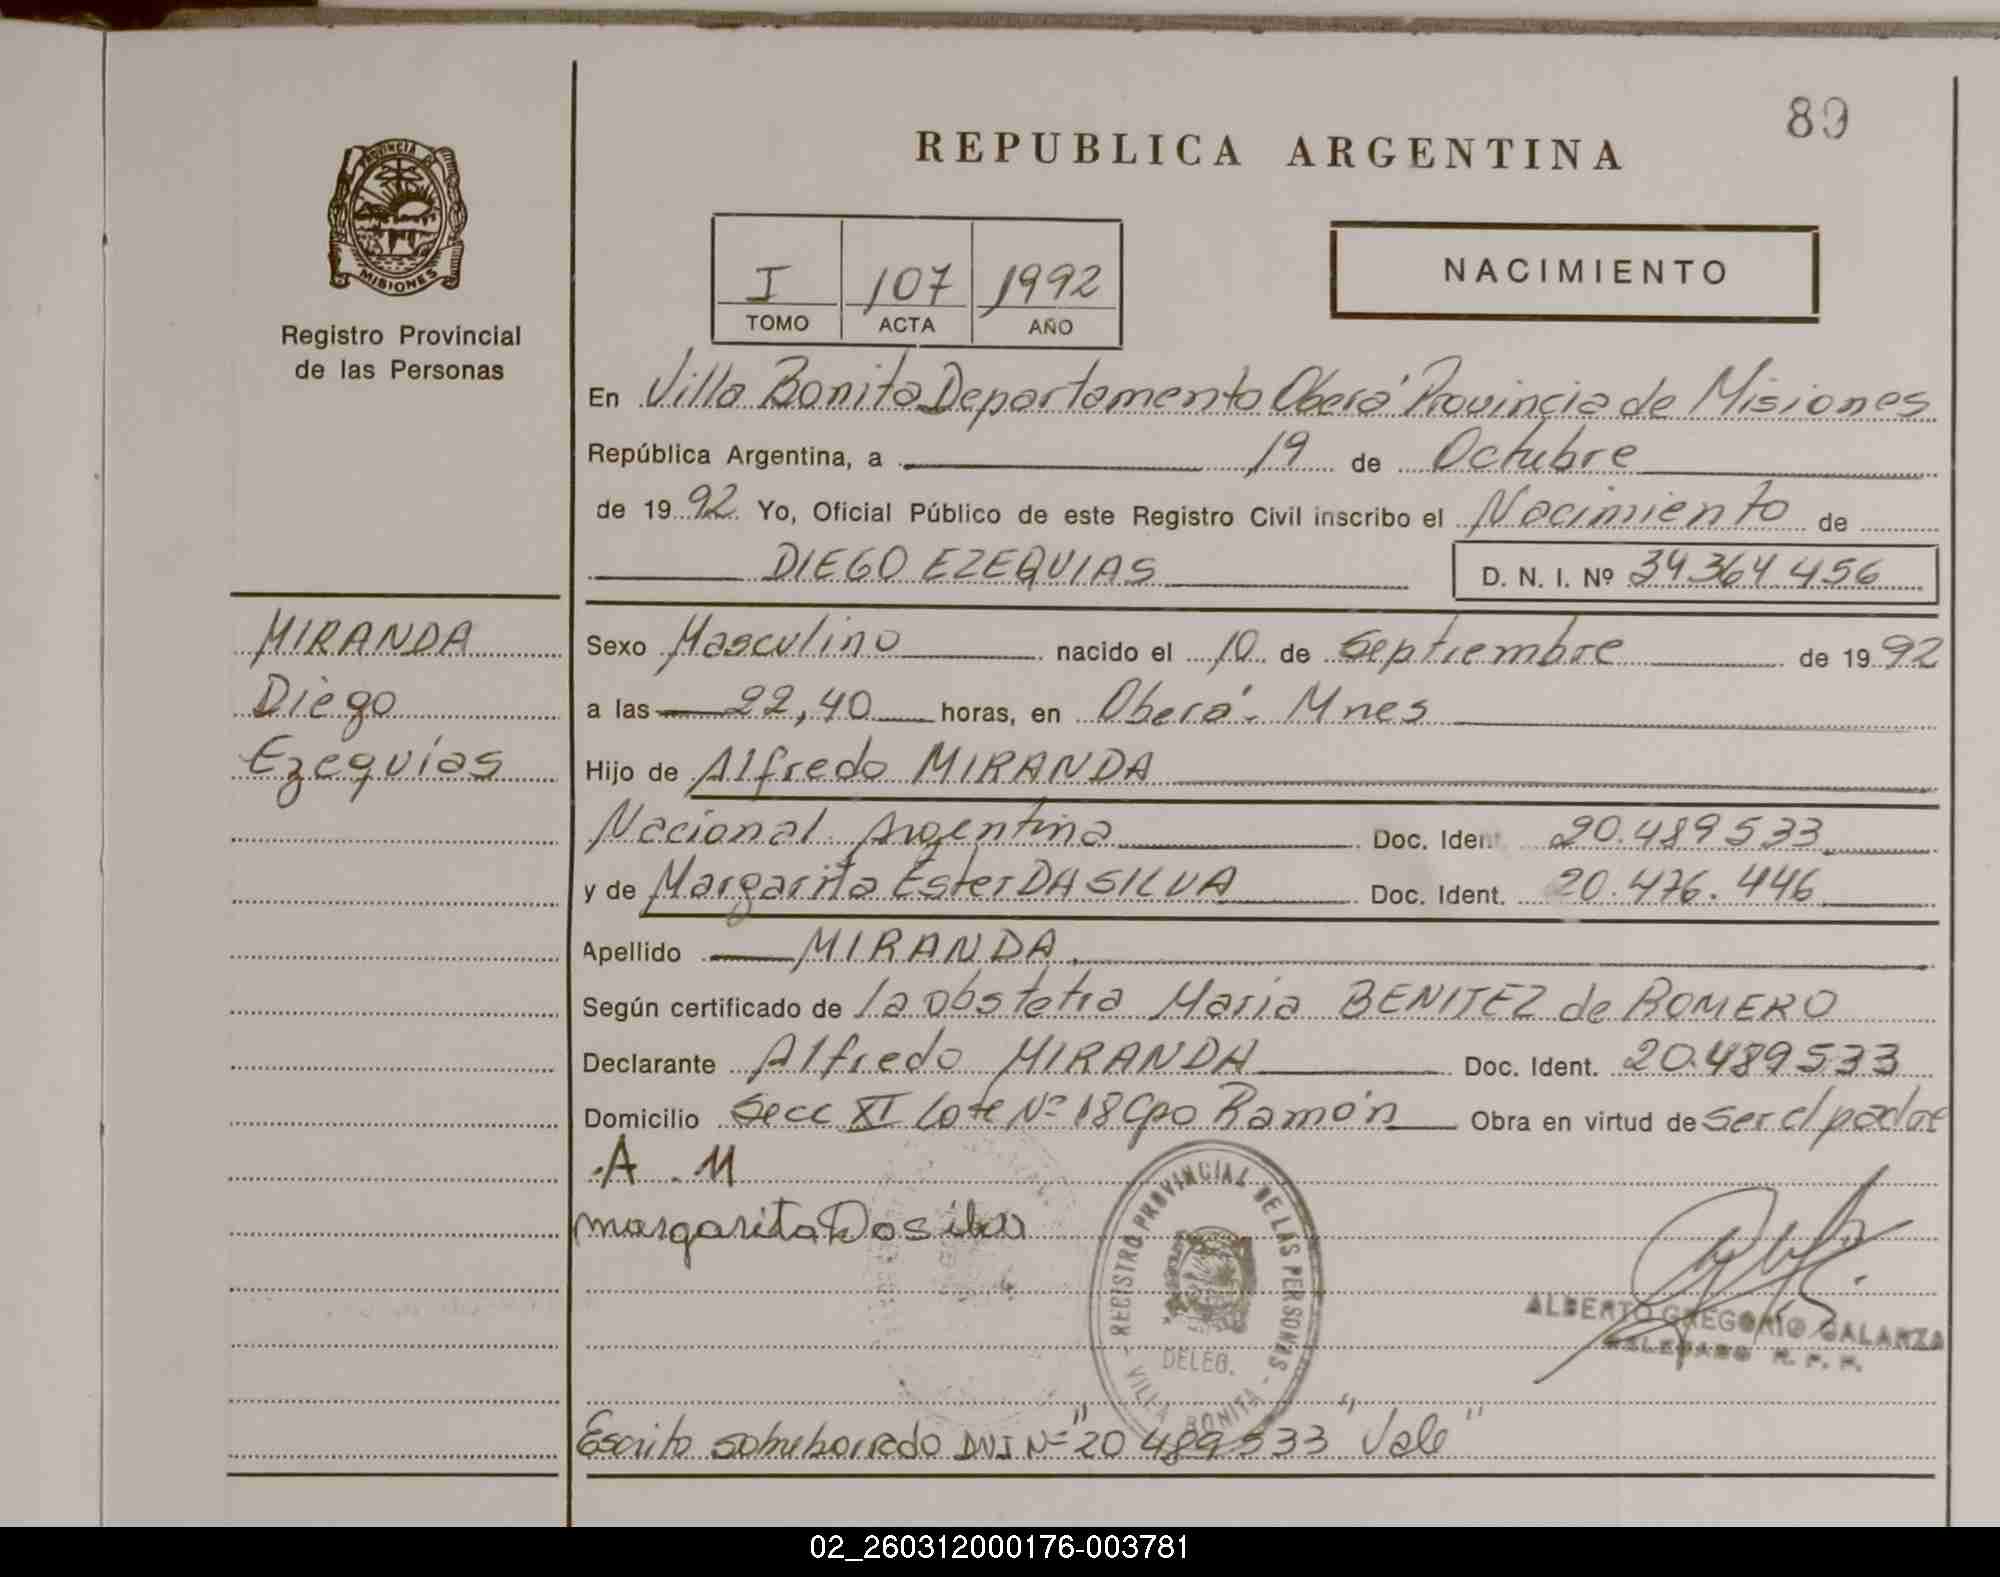 89
REPUBLICA ARGENTINA
PROVINCIA D
MISIONES
Registro Provincial
de las Personas
I 107 1992
TOMO ACTA AÑO
NACIMIENTO
En Villa Bonita Departamento Oberá Provincia de Misiones
República Argentina, a 19 de Octubre
de 1992 Yo, Oficial Público de este Registro Civil inscribo el Nacimiento de
DIEGO EZEQUIAS D. N. I. Nº 34.364.456
MIRANDA
Diego
Ezequías
Sexo Masculino nacido el 10 de Septiembre de 1992
a las 22,40 horas, en Oberá - Mnes
Hijo de Alfredo MIRANDA
Nacional Argentina Doc. Ident. 20.489533
y de Margarita Ester DA SILVA Doc. Ident. 20.476.446
Apellido MIRANDA
Según certificado de la obstetra Maria BENITEZ de ROMERO
Declarante Alfredo MIRANDA Doc. Ident. 20.489533
Domicilio Secc XI Lote Nº 18 Cpo Ramón Obra en virtud de ser el padre
A. M
margarita Da silva
REGISTRO PROVINCIAL DE LAS PERSONAS
DELEG.
- VILLA BONITA -
ALBERTO GREGORIO GALARZA
DELEGADO R. P. P.
Escrito sobreborrado DNI Nº "20 489533" "Vale"
02_260312000176-003781